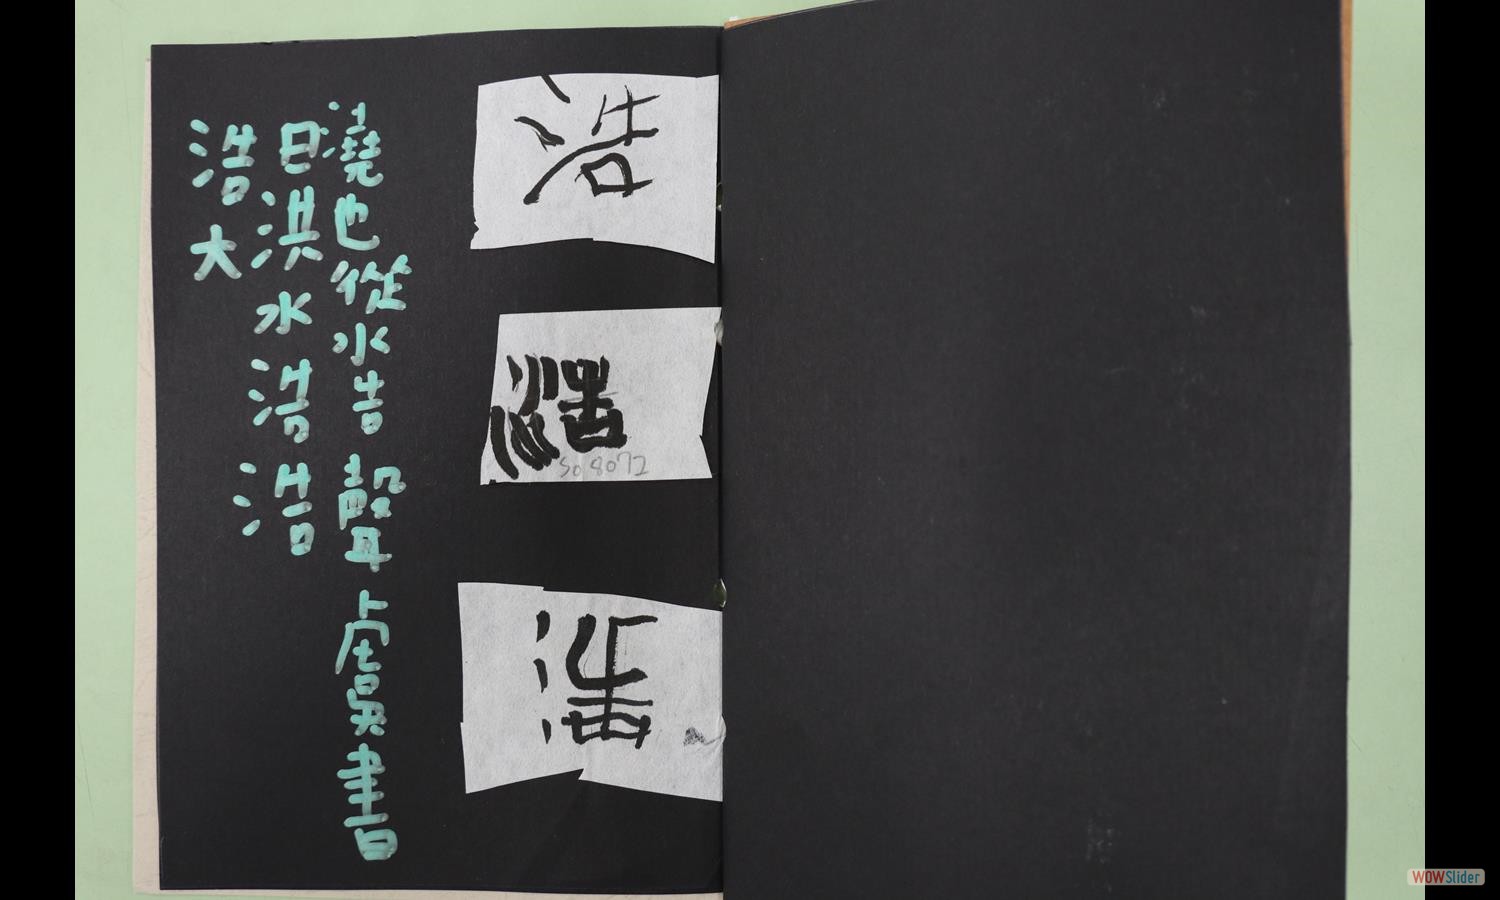 浩
浩
So 8072
浩
澆也從水告聲虞書
曰洪水浩浩
浩大
WOWSlider